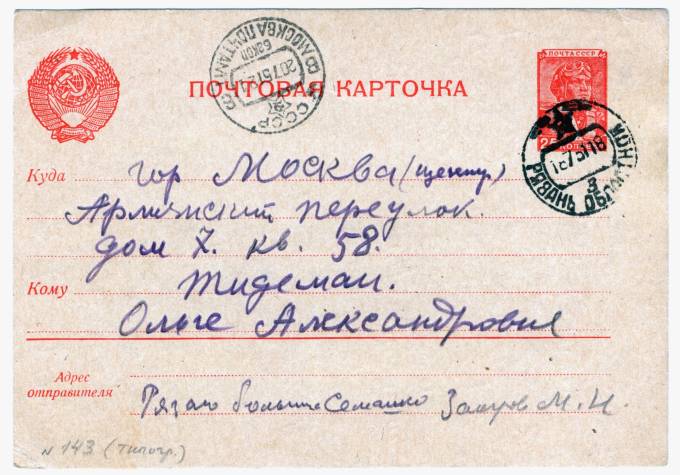 ПОЧТОВАЯ КАРТОЧКА
ПОЧТА СССР
МОСКВА ПОЧТАМТ
СССР
РЯЗАНЬ ОБЛАСТН.
Куда гор Москва (центр.)
Армянский переулок.
дом 7. кв. 58.
Кому Тидеман.
Ольге Александровне
Адрес
отправителя
Рязань больн Семашко М. И.
N 143 (типогр.)